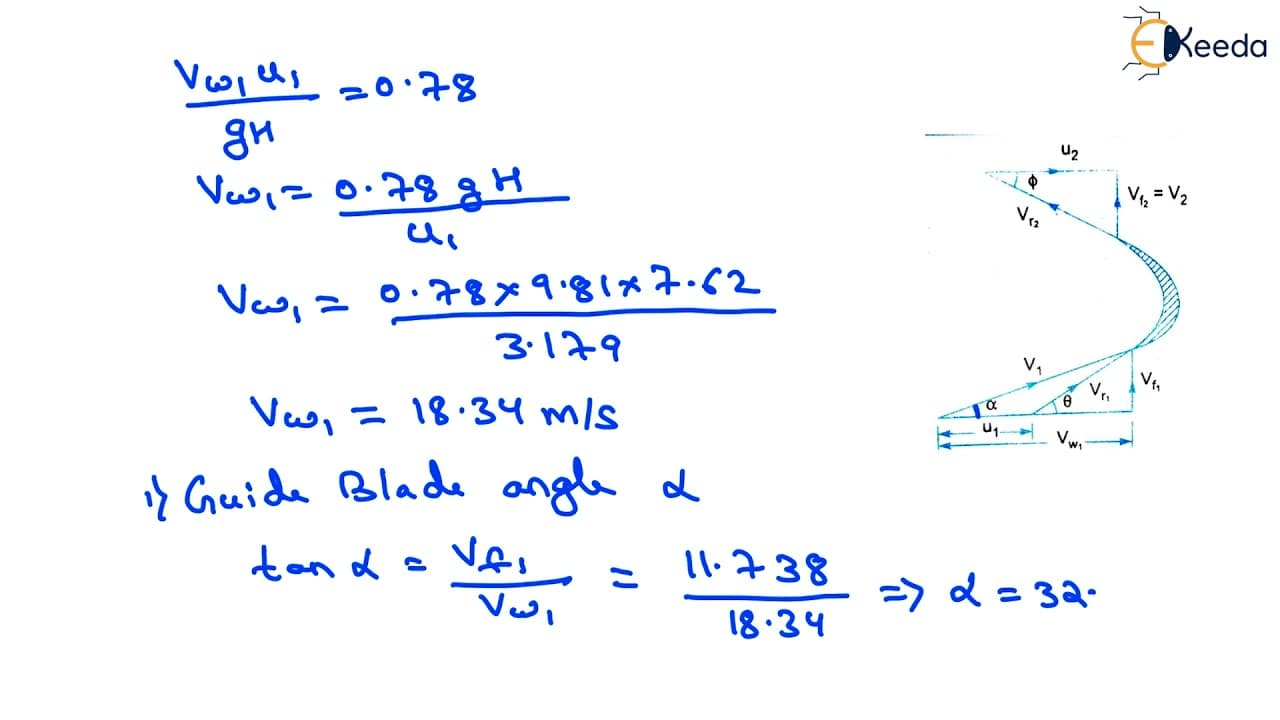 EKeeda
Vω₁ u₁ / gH = 0.78
Vω₁ = 0.78 gH / u₁
Vω₁ = 0.78 × 9.81 × 7.62 / 3.179
Vω₁ = 18.34 m/s
i) Guide Blade angle α
tan α = Vf₁ / Vω₁ = 11.738 / 18.34 => α = 32.
u₂
ϕ
Vf₂ = V₂
Vr₂
V₁
α
θ
Vr₁
Vf₁
u₁
Vw₁